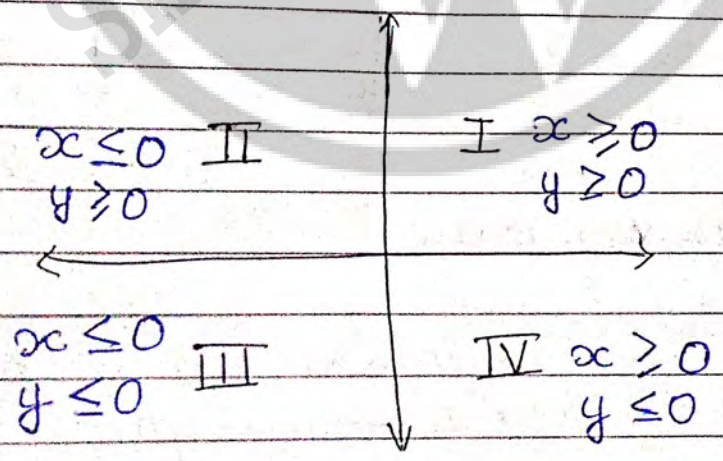 x ≤ 0 II
y ≥ 0
I x ≥ 0
y ≥ 0
x ≤ 0 III
y ≤ 0
IV x ≥ 0
y ≤ 0